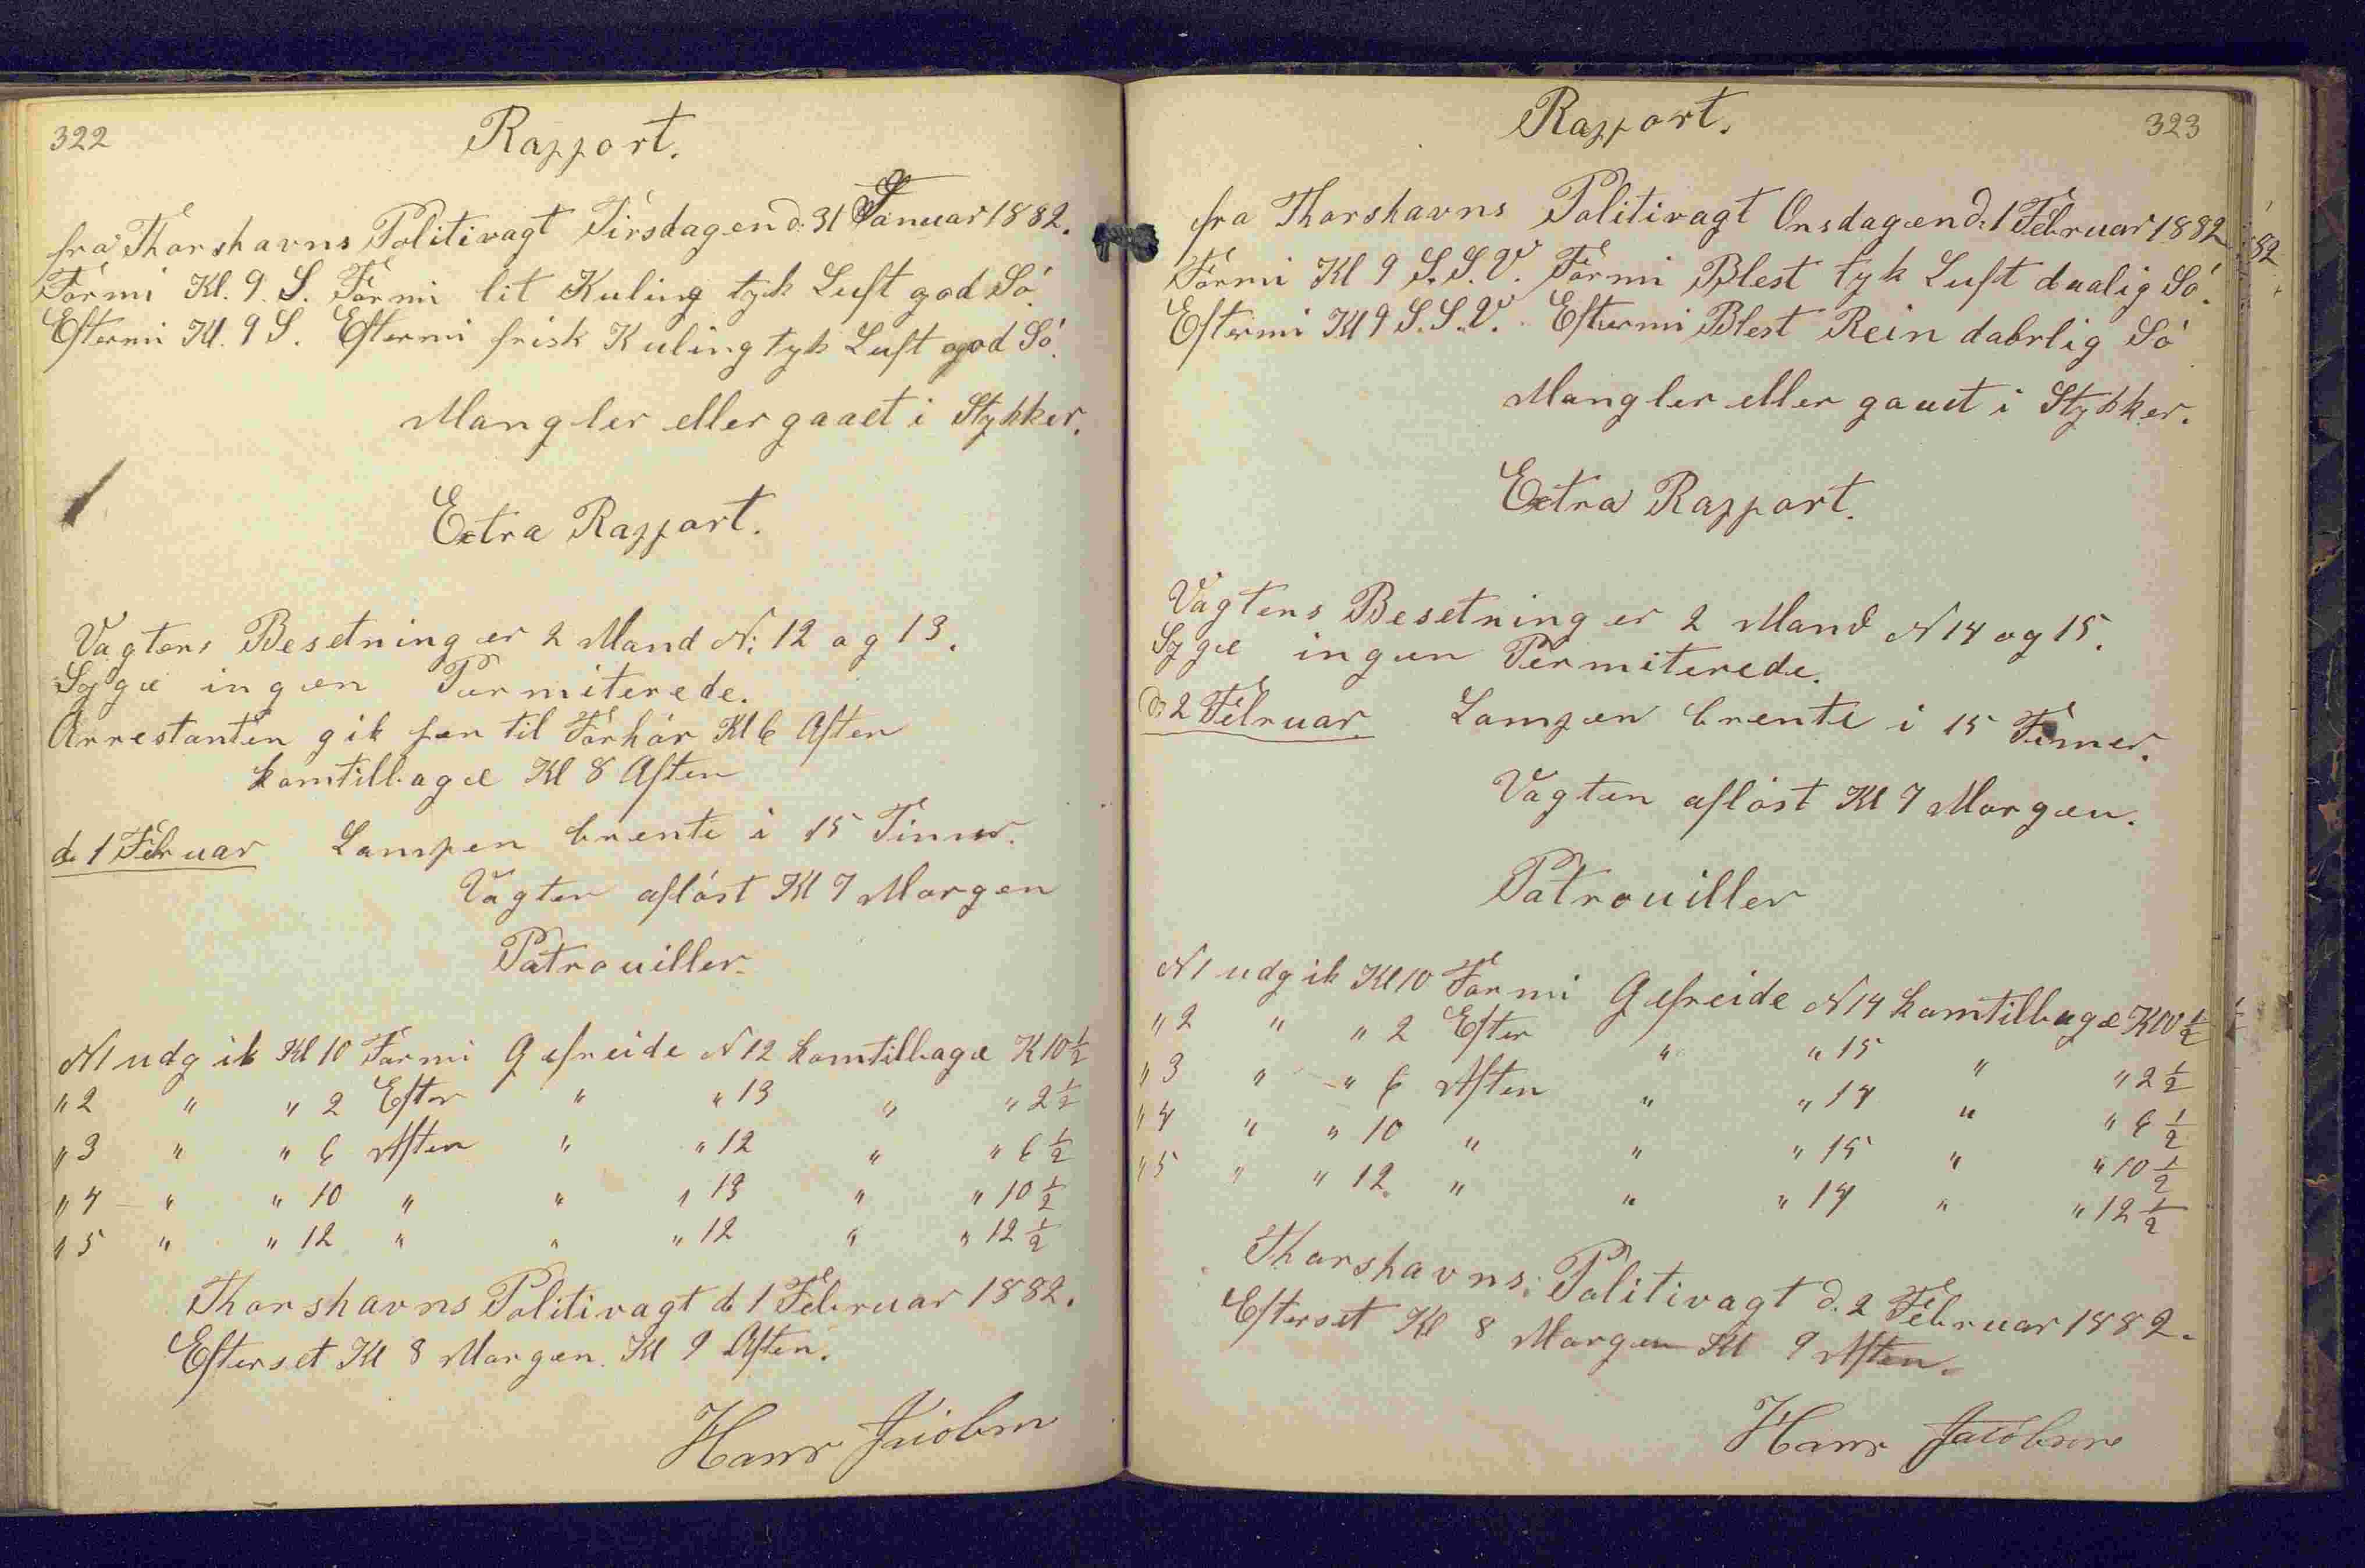 322
Rapport.
fra Thorshavns Politivagt Tirsdagen d. 31 Januar 1882.
Formi Kl. 9. S. Formi lit Kuling tyk Luft god Só.
Eftermi Kl. 9 S. Eftermi frisk Kuling tyk Luft god Só.
Mangler eller gaaet i Stykker.
Extra Rapport.
Vagtens Besetning er 2 Mand N: 12 og 13.
Syge ingen Permiterede.
Arrestanten gik fra til Forhór Kl 6 Aften
komtilbage Kl 8 Aften
d. 1 Februar Lampen brente i 15 Timer.
Vagten aflóst Kl 7 Morgen
Patrouiller.
N1 udgik Kl 10 Formi Gefreide N 12 komtilbage K 10 ½
" 2 " " 2 Efter " " 13 " " 2 ½
" 3 " " 6 Aften " " 12 " " 6 ½
" 4 " " 10 " " " 13 " " 10 ½
" 5 " " 12 " " " 12 " " 12 ½
Thorshavns Politivagt d. 1 Februar 1882.
Efterset Kl 8 Morgen. Kl 9 Aften.
Hans Jacobsen
323
Rapport.
fra Thorshavns Politivagt Onsdagen d. 1 Februar 1882
Formi Kl 9 S.S.V. Formi Blest tyk Luft daalig Só.
Eftermi Kl 9 S.S.V. Eftermi Blest Rein dabrlig Só
Mangler eller gaaet i Stykker.
Extra Rapport.
Vagtens Besetning er 2 Mand N 14 og 15.
Syge ingen Permiterede.
d. 2 Februar. Lampen brente i 15 Timer.
Vagten aflóst Kl 7 Morgen.
Patrouiller
N1 udgik Kl 10 Formi Gefreide N 14 komtilbage Kl 10 ½
" 2 " " 2 Efter " " 15 " " 2 ½
" 3 " " 6 Aften " " 14 " " 6 ½
" 4 " " 10 " " " 15 " " 10 ½
" 5 " " 12. " " " 14 " " 12 ½
Thorshavns. Politivagt d. 2 Februar 1882.
Efterset Kl 8 Morgen Kl 9 Aften.
Hans Jacobsen
82